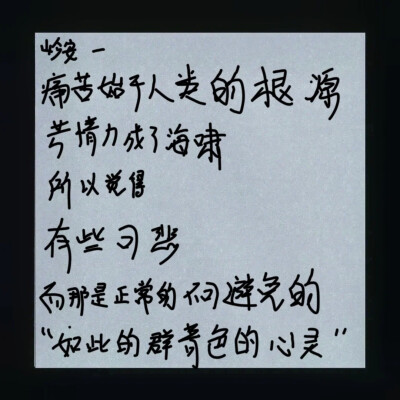 一
痛苦始于人类的根源
情力成了海啸
所以觉得
有些可悲
而那是正常的不可避免的
“如此的群青色的心灵”